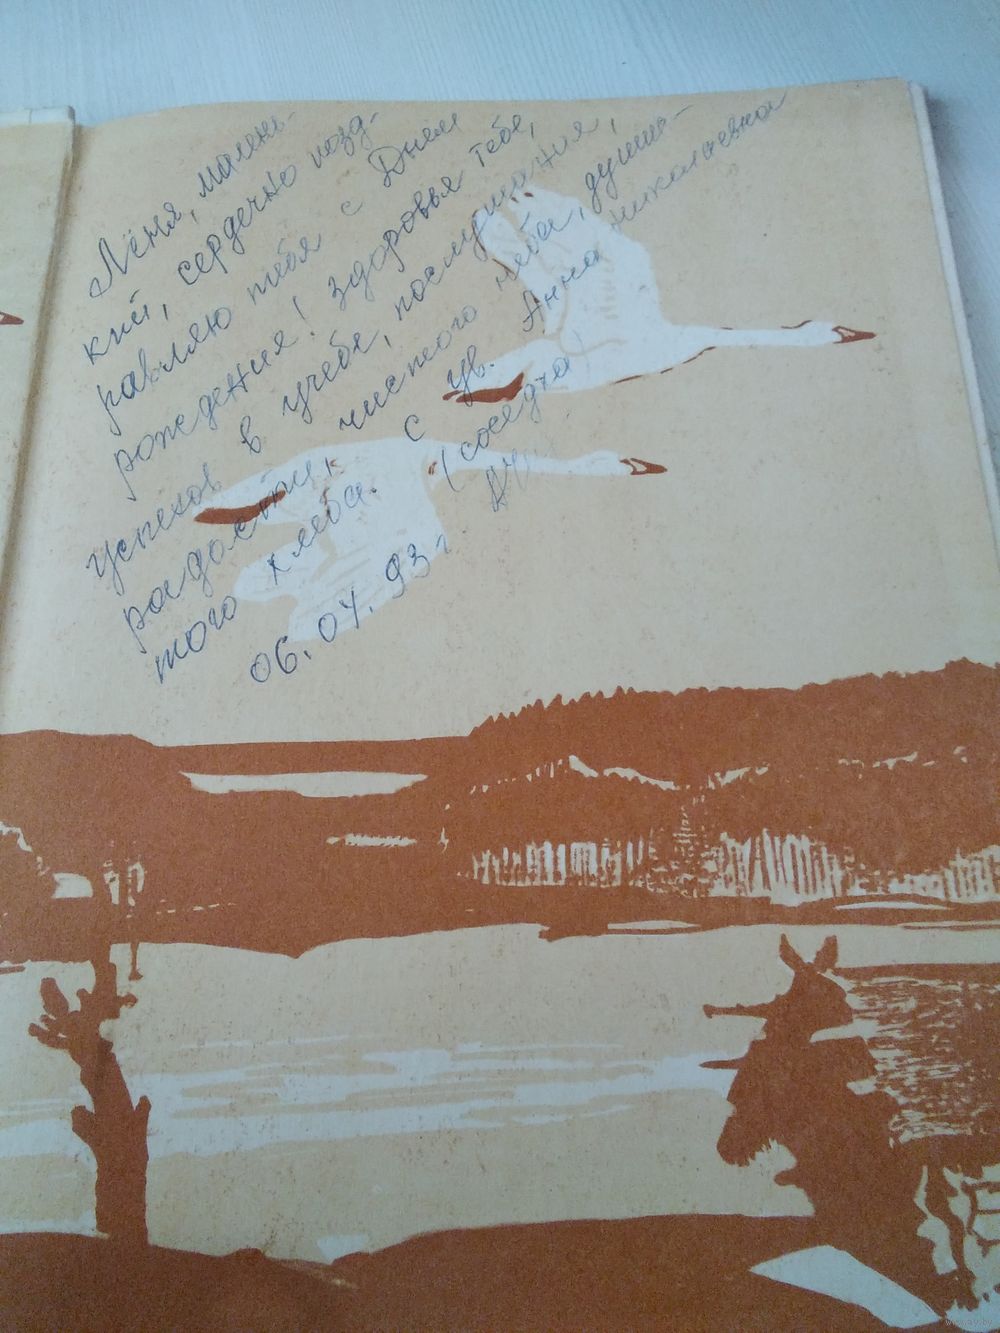 Лёня, малень-
кий, сердечно позд-
равляю тебя с Днём
рождения! Здоровья тебе,
успехов в учебе, послушания,
радости, чистого неба, душис-
того хлеба. С ув. Анна Николаевна
(соседка)
06.04.93 г.